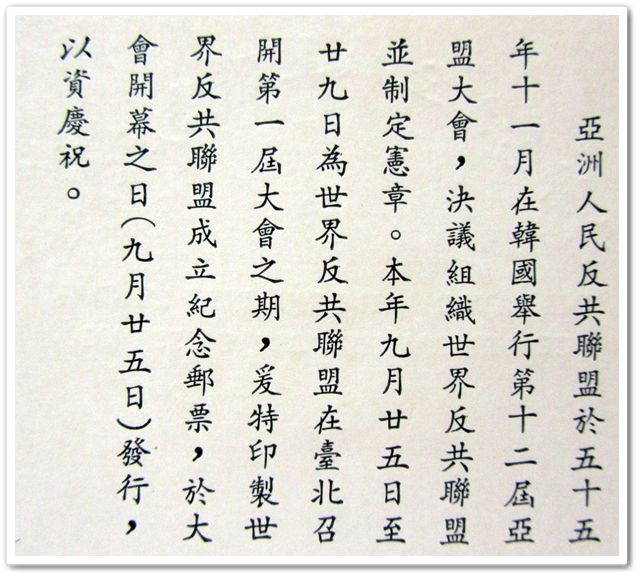 亞洲人民反共聯盟於五十五
年十一月在韓國舉行第十二屆亞
盟大會，決議組織世界反共聯盟
並制定憲章。本年九月廿五日至
廿九日為世界反共聯盟在臺北召
開第一屆大會之期，爰特印製世
界反共聯盟成立紀念郵票，於大
會開幕之日（九月廿五日）發行，
以資慶祝。